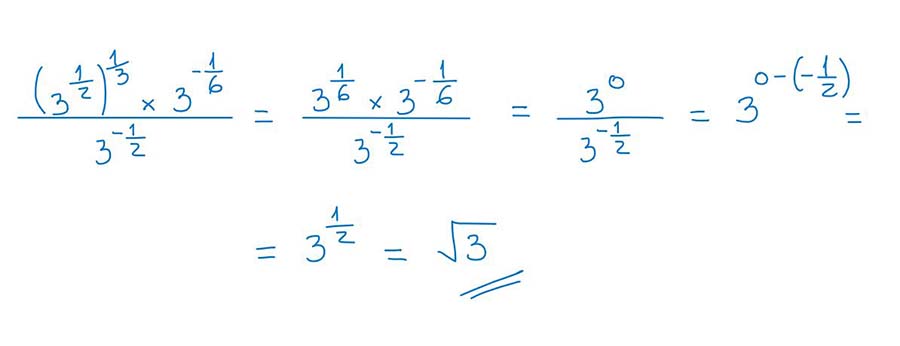 \frac{(3^{\frac{1}{2}})^{\frac{1}{3}} × 3^{-\frac{1}{6}}}{3^{-\frac{1}{2}}} = \frac{3^{\frac{1}{6}} × 3^{-\frac{1}{6}}}{3^{-\frac{1}{2}}} = \frac{3^{0}}{3^{-\frac{1}{2}}} = 3^{0-(-\frac{1}{2})} =
= 3^{\frac{1}{2}} = \sqrt{3}